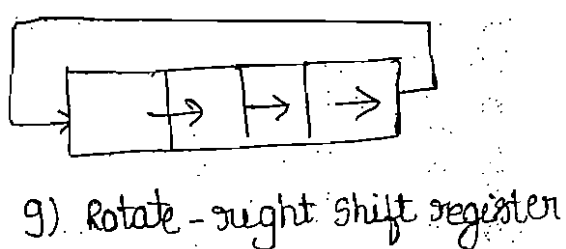 9) Rotate-right shift register